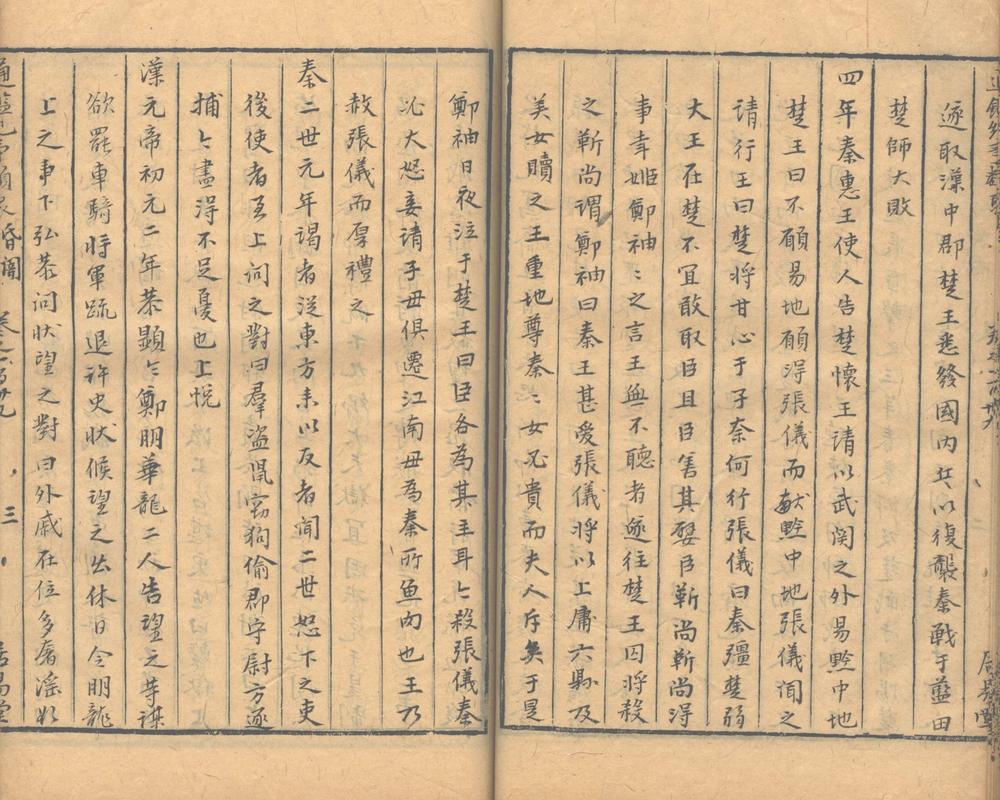 遂取漢中郡楚王悉發國內兵以復襲秦戰于藍田
楚師大敗
四年秦惠王使人告楚懷王請以武關之外易黔中地
楚王曰不願易地願得張儀而獻黔中地張儀聞之
請行王曰楚將甘心于子奈何行張儀曰秦彊楚弱
大王在楚不宜敢取臣且臣善其嬖臣靳尚靳尚得
事幸姬鄭袖鄭袖之言王無不聽者遂往楚王囚將殺
之靳尚謂鄭袖曰秦王甚愛張儀將以上庸六縣及
美女贖之王重地尊秦秦女必貴而夫人斥矣于是
鄭袖日夜泣于楚王曰臣各為其主耳今殺張儀秦
必大怒妾請子母俱遷江南毋為秦所魚肉也王乃
赦張儀而厚禮之
秦二世元年謁者從東方來以反者聞二世怒下之吏
後使者至上問之對曰羣盜鼠竊狗偷郡守尉方逐
捕今盡得不足憂也上悅
漢元帝初元二年恭顯令鄭朋華龍二人告望之等謀
欲罷車騎將軍疏退許史狀候望之出休日令朋龍
上之事下弘恭問狀望之對曰外戚在位多奢淫欲
昏闇
三
居易堂